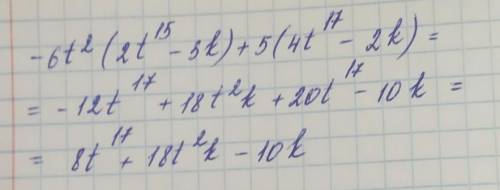 -6t² (2t¹⁵ - 3k) + 5(4t¹⁷ - 2k) =
= -12t¹⁷ + 18t²k + 20t¹⁷ - 10k =
= 8t¹⁷ + 18t²k - 10k